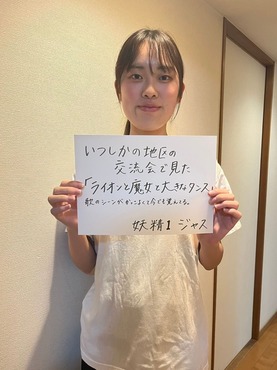 いつしかの地区の
交流会で見た
「ライオンと魔女と大きなタンス」
歌のシーンがかっこよくて今でも覚えてる。
妖精1 ジャス